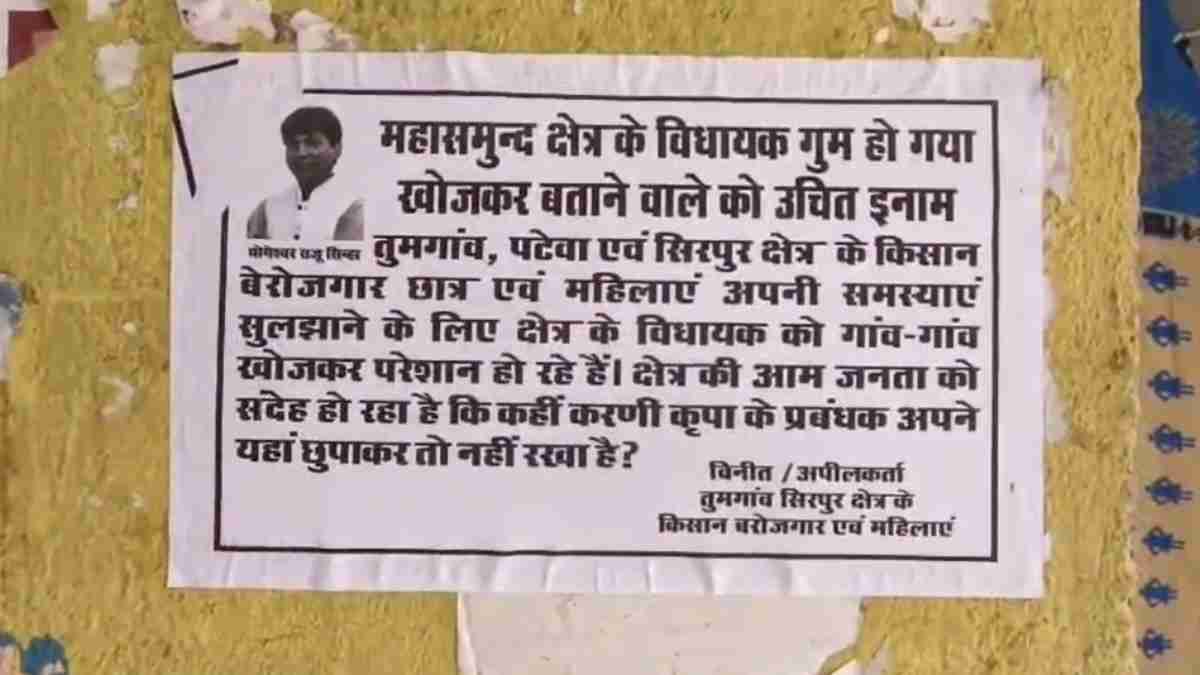 महासमुन्द क्षेत्र के विधायक गुम हो गया
खोजकर बताने वाले को उचित इनाम
योगेश्वर राजू सिन्हा
तुमगांव, पटेवा एवं सिरपुर क्षेत्र के किसान
बेरोजगार छात्र एवं महिलाएं अपनी समस्याएं
सुलझाने के लिए क्षेत्र के विधायक को गांव-गांव
खोजकर परेशान हो रहे हैं। क्षेत्र की आम जनता को
संदेह हो रहा है कि कहीं करणी कृपा के प्रबंधक अपने
यहां छुपाकर तो नहीं रखा है?
विनीत /अपीलकर्ता
तुमगांव सिरपुर क्षेत्र के
किसान बरोजगार एवं महिलाएं